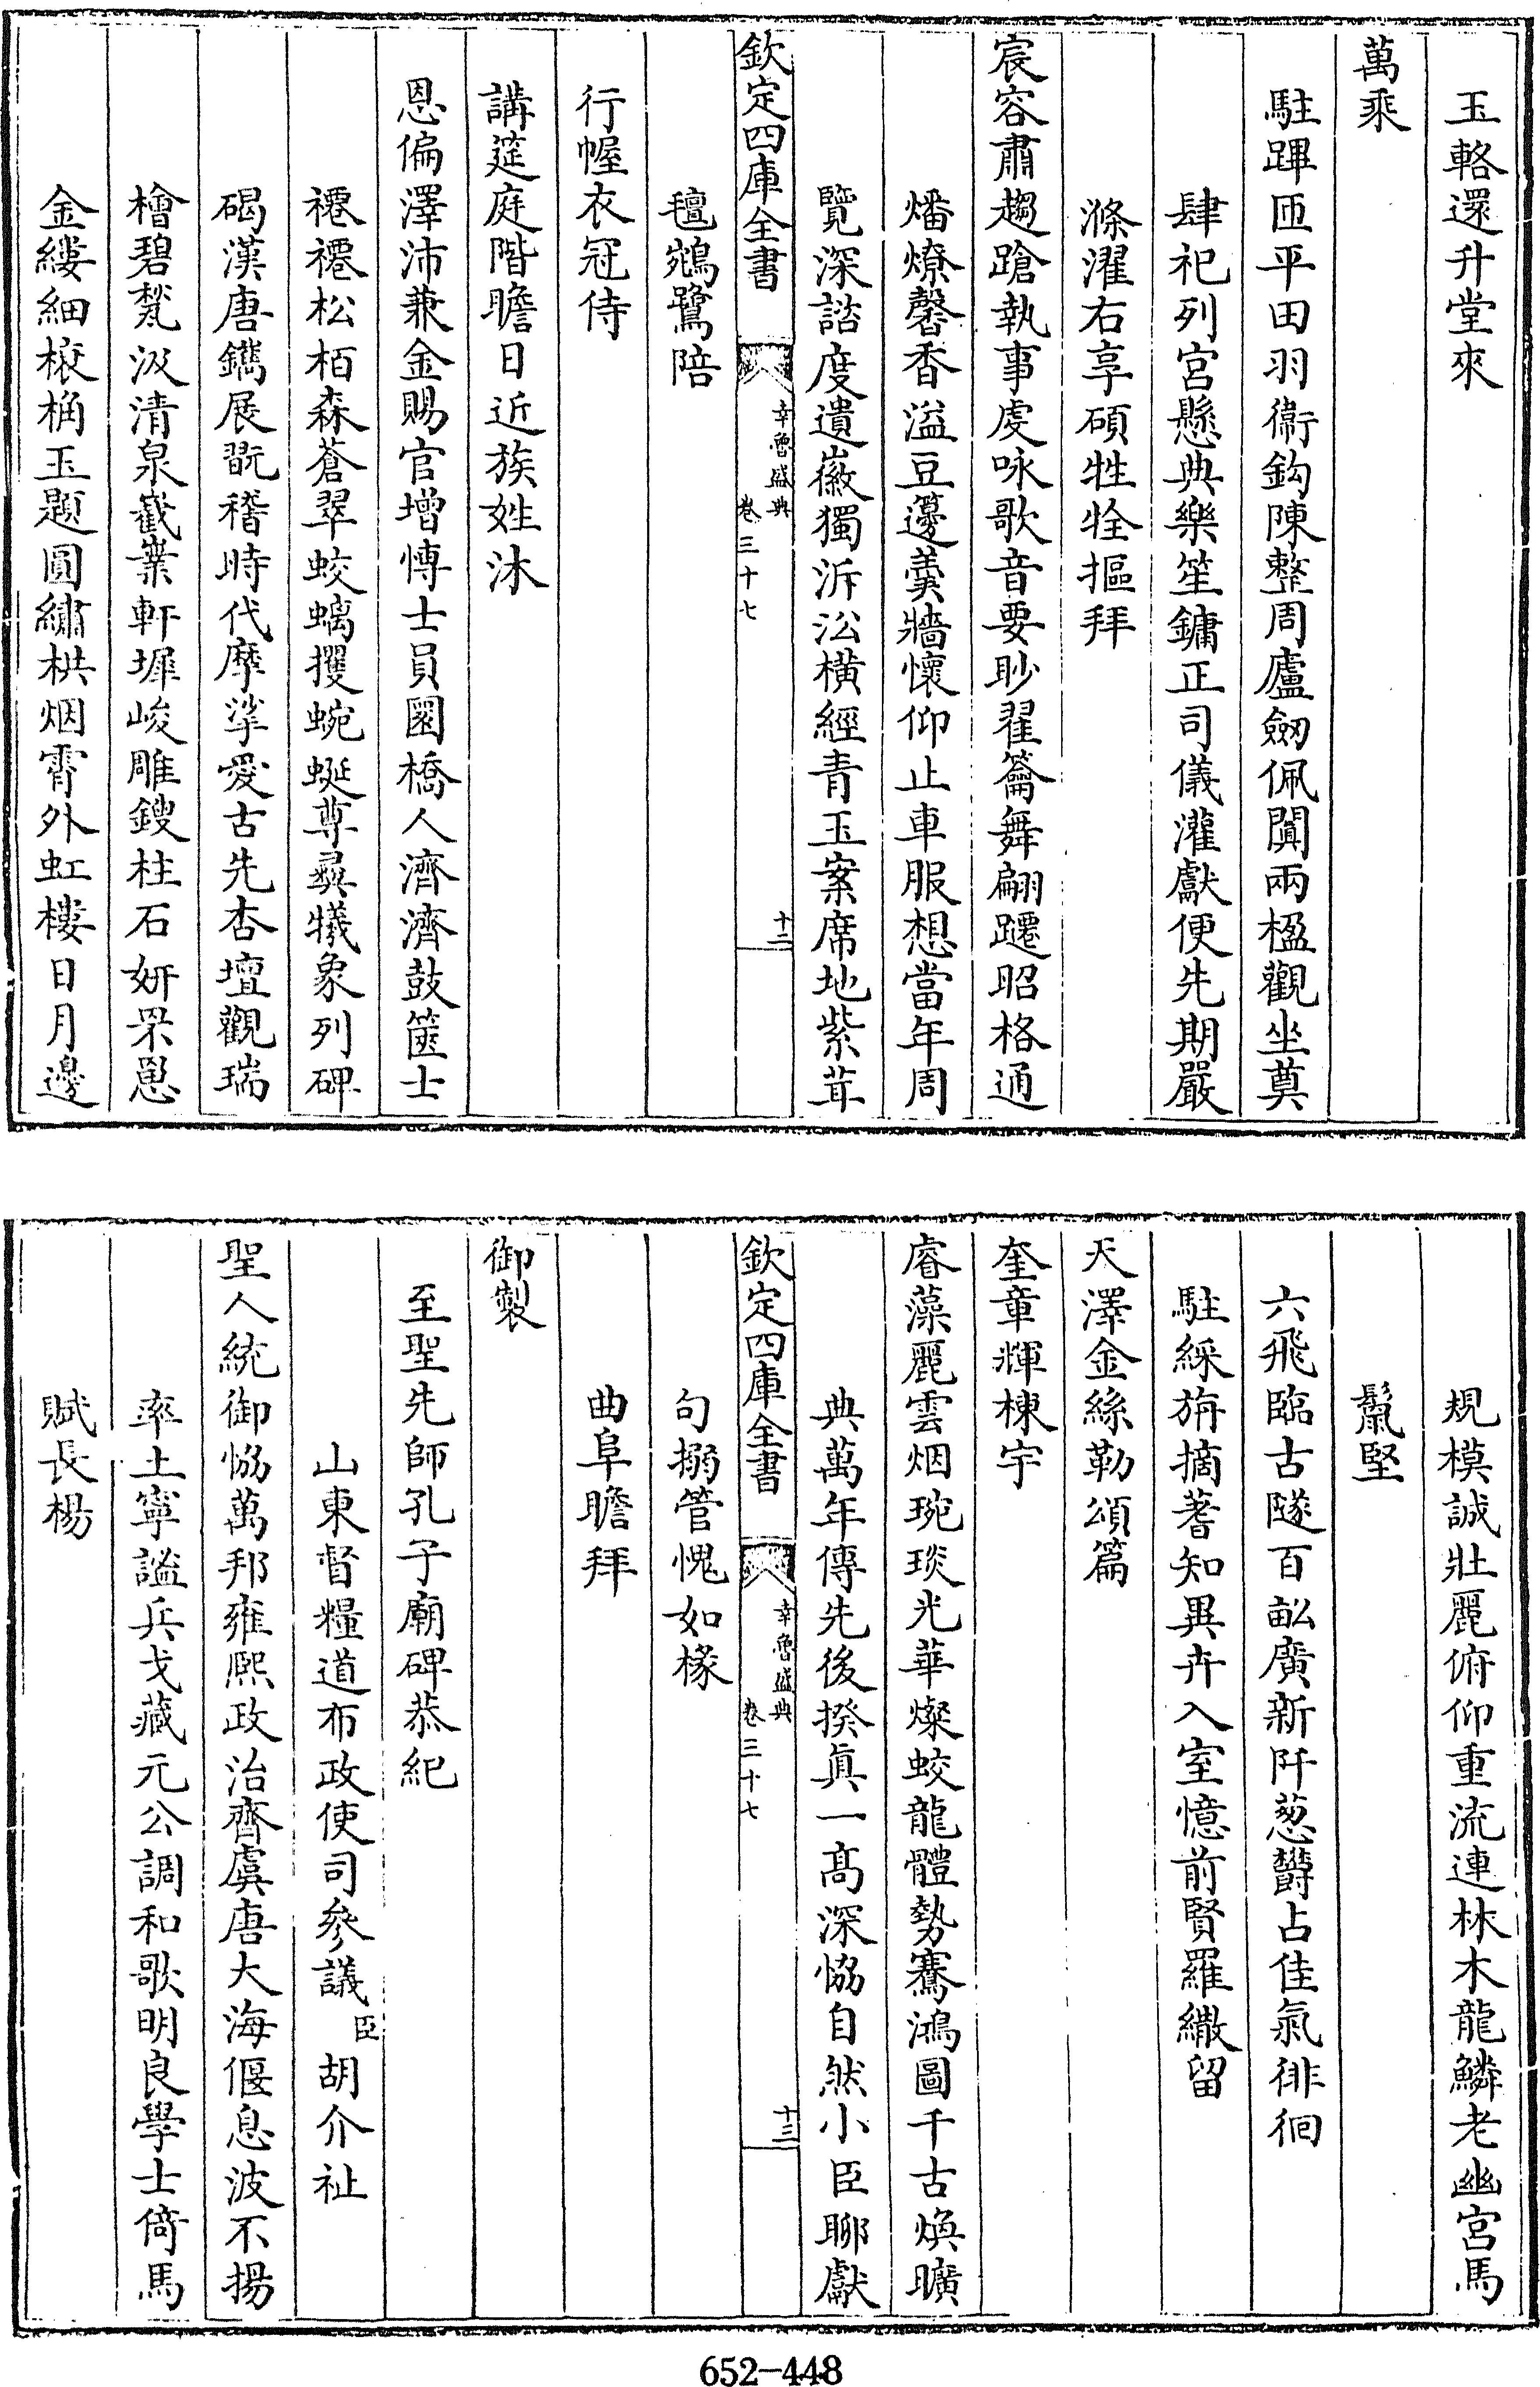 玉輅還升堂來
萬乘
駐蹕匝平田羽衞鈎陳整周廬劒佩闐兩楹觀坐奠
肆祀列宫懸典樂笙鏞正司儀灌獻便先期嚴
滌濯右享碩牲牷摳拜
宸容肅趨蹌執事䖍咏歌音要眇翟籥舞翩躚昭格通
燔燎馨香溢豆籩羮牆懷仰止車服想當年周
覽深諮度遺徽獨泝㳂橫經青玉案席地紫茸
欽定四庫全書
幸魯盛典
卷三十七
十二
氊鵷鷺陪
行幄衣冠侍
講筵庭階瞻日近族姓沐
恩偏澤沛兼金賜官增愽士員圜橋人濟濟鼓篋士
褼褼松栢森蒼翠蛟螭攫蜿蜒尊彛犧象列碑
碣漢唐鐫展翫稽時代摩挲愛古先杏壇觀瑞
檜碧甃汲清泉嶻嶪軒墀峻雕鎪柱石妍罘罳
金縷細榱桷玉題圓繡栱烟霄外虹樓日月邊
規模誠壯麗俯仰重流連林木龍鱗老幽宫馬
鬛堅
六飛臨古隧百畝廣新阡葱欝占佳氣徘徊
駐綵旃摘蓍知異卉入室憶前賢羅繖留
天澤金絲勒頌篇
奎章輝棟宇
睿藻麗雲烟琬琰光華燦蛟龍體勢騫鴻圖千古煥曠
典萬年傳先後揆眞一髙深恊自然小臣聊獻
欽定四庫全書
幸魯盛典
卷三十七
十三
句搦管愧如椽
曲阜瞻拜
御製
至聖先師孔子廟碑恭紀
山東督糧道布政使司參議臣胡介祉
聖人統御恊萬邦雍熙政治齊虞唐大海偃息波不揚
率土寧謐兵戈藏元公調和歌明良學士倚馬
賦長楊
652-448